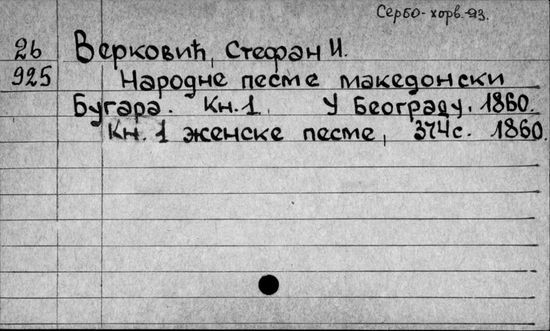 Сербо-хорв.яз.
26 Верковић, Стефан И.
925 Народне песме македонски
Бугара. Кн.1. У Београду, 1860.
Кн. 1 женске песме, 374с. 1860.